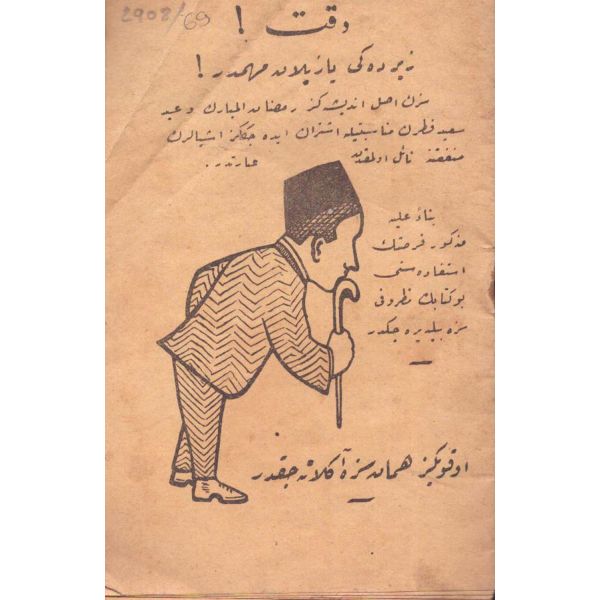 2902/69
دقت !
زیرده كی یازیلان مهمدر !
سزك اصل اندیشه كز رمضان المبارك و عید
سعید فطرك مناسبتیله اشتراك ایده جككز اشیالرك
منفعتنه نائل اولمقدن عبارتدر.
بناءً علیه
مذكور فرصتك
استفاده سنی
بو كتابك مظروفی
سزه بیلدیره جكدر
اوقویكز همان سزه آكلاته جقدر